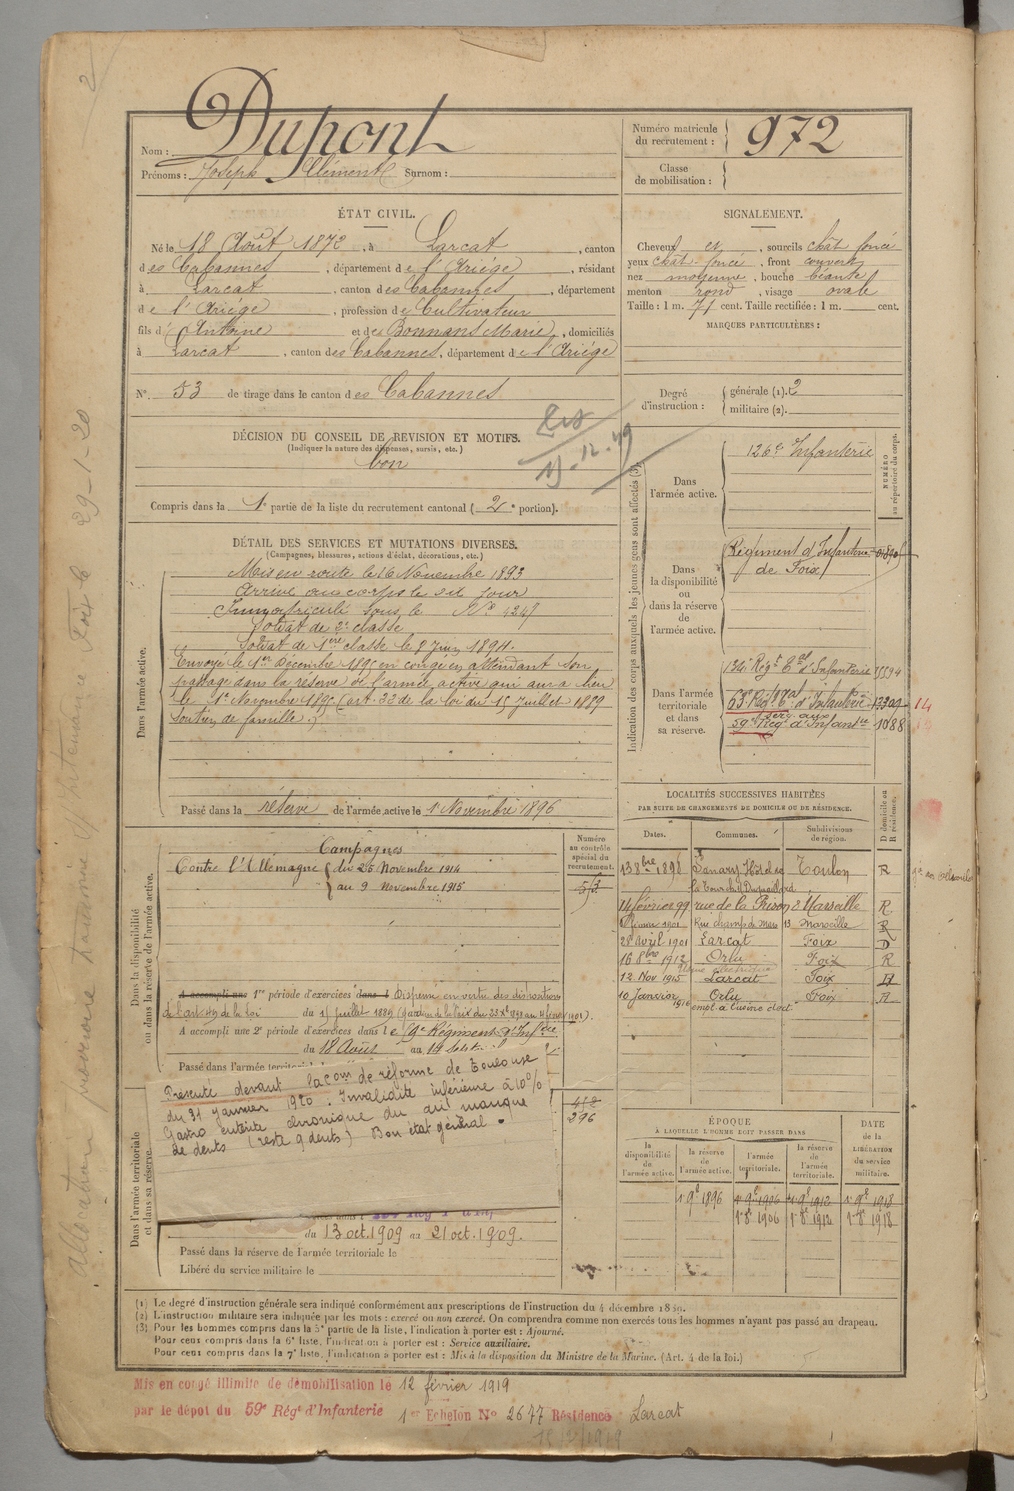 2
Nom : Dupont
Prénoms : Joseph Clément Surnom :
Numéro matricule
du recrutement : 972
Classe
de mobilisation :
ÉTAT CIVIL.
Né le 18 Août 1872, à Larcat, canton
des Cabannes, département de l'Ariège, résidant
à Larcat, canton des Cabannes, département
de l'Ariège, profession de Cultivateur
fils d'Antoine et des Bonnans Marie, domiciliés
à Larcat, canton des Cabannes, département de l'Ariège
N° 53 de tirage dans le canton des Cabannes
SIGNALEMENT.
Cheveux et, sourcils chât foncé
yeux chât-foncé, front couvert
nez moyenne, bouche béante
menton rond, visage ovale
Taille : 1 m. 71 cent. Taille rectifiée : 1 m. cent.
MARQUES PARTICULIÈRES :
Degré
d'instruction :
générale (1). 2
militaire (2).
DÉCISION DU CONSEIL DE REVISION ET MOTIFS.
(Indiquer la nature des dispenses, sursis, etc.)
bon
Compris dans la 1e partie de la liste du recrutement cantonal (2e portion).
DÉTAIL DES SERVICES ET MUTATIONS DIVERSES.
(Campagnes, blessures, actions d'éclat, décorations, etc.)
Dans l'armée active.
Mis en route le 16 Novembre 1893
Arrivé au corps le dit jour
Immatriculé sous le N°
Soldat de 2e classe
Soldat de 1ère classe le 8 Juin 1894.
Envoyé le 1er Décembre 1895 en congé en attendant son
passage dans la réserve de l'armée active qui aura lieu
le 1er Novembre 1895 (art. 22 de la loi du 15 Juillet 1889
soutien de famille.)
Passé dans la réserve de l'armée active le 1 Novembre 1896
Indication des corps auxquels les jeunes gens sont affectés (3).
NUMÉRO
au répertoire du corps.
Dans
l'armée active.
126e Infanterie
Dans
la disponibilité
ou
dans la réserve
de
l'armée active.
Régiment d'Infanterie
de Foix
Dans l'armée
territoriale
et dans
sa réserve.
Régt Eal d'Infanterie
Régt Eal d'Infanterie
59e Régt d'Infantie 1088
14
LOCALITÉS SUCCESSIVES HABITÉES
PAR SUITE DE CHANGEMENTS DE DOMICILE OU DE RÉSIDENCE.
D domicile ou
R résidence.
Dates. Communes. Subdivisions
de région.
13 8bre 1898 Sanary Toulon R
14 février 99 rue de la Prison 2 Marseille R
1901 Rue champ de Mars 13 Marseille R
28 Avril 1901 Larcat Foix D
16 8bre 1912 Orlu Foix R
12 Nov 1915 Larcat Foix
10 Janvier 1916 Orlu Foix
empl à l'usine élect
Dans la disponibilité
ou dans la réserve de l'armée active.
Campagnes
Contre l'Allemagne du 25 Novembre 1914
au 9 Novembre 1915
Numéro
au contrôle
spécial du
recrutement.
A accompli une 1re période d'exercices dans l Dispensé en vertu des dispositions
de l'art de la loi du 15 juillet 1889
A accompli une 2e période d'exercices dans le Régiment d'Infrie
du 18 Août au
Passé dans l'armée territoriale
Présenté devant la Com de réforme de Toulouse
du 31 janvier 1920. Invalidité inférieure à 10%
Gastro entérite chronique du dit manque
de dents (reste 9 dents) Bon état général.
296
Dans l'armée territoriale
et dans sa réserve.
du 13 oct. 1909 au 21 oct. 1909.
Passé dans la réserve de l'armée territoriale le
Libéré du service militaire le
ÉPOQUE
À LAQUELLE L'HOMME DOIT PASSER DANS
la
disponibilité
de
l'armée active.
la réserve
de
l'armée active.
l'armée
territoriale.
la réserve
de
l'armée
territoriale.
DATE
de la
LIBÉRATION
du service
militaire.
1 9e 1896 1 9e 1906 1 9e 1912 1 9e 1918
1 8e 1906 1 8e 1912 1 8e 1918
(1) Le degré d'instruction générale sera indiqué conformément aux prescriptions de l'instruction du 4 décembre 1889.
(2) L'instruction militaire sera indiquée par les mots : exercé ou non exercé. On comprendra comme non exercés tous les hommes n'ayant pas passé au drapeau.
(3) Pour les hommes compris dans la 5e partie de la liste, l'indication à porter est : Ajourné.
Pour ceux compris dans la 6e liste, l'indication à porter est : Service auxiliaire.
Pour ceux compris dans la 7e liste, l'indication à porter est : Mis à la disposition du Ministre de la Marine. (Art. 4 de la loi.)
Mis en congé illimité de démobilisation le 12 février 1919
par le dépôt du 59e Régt d'Infanterie 1er Echelon N° 2677 Résidence Larcat